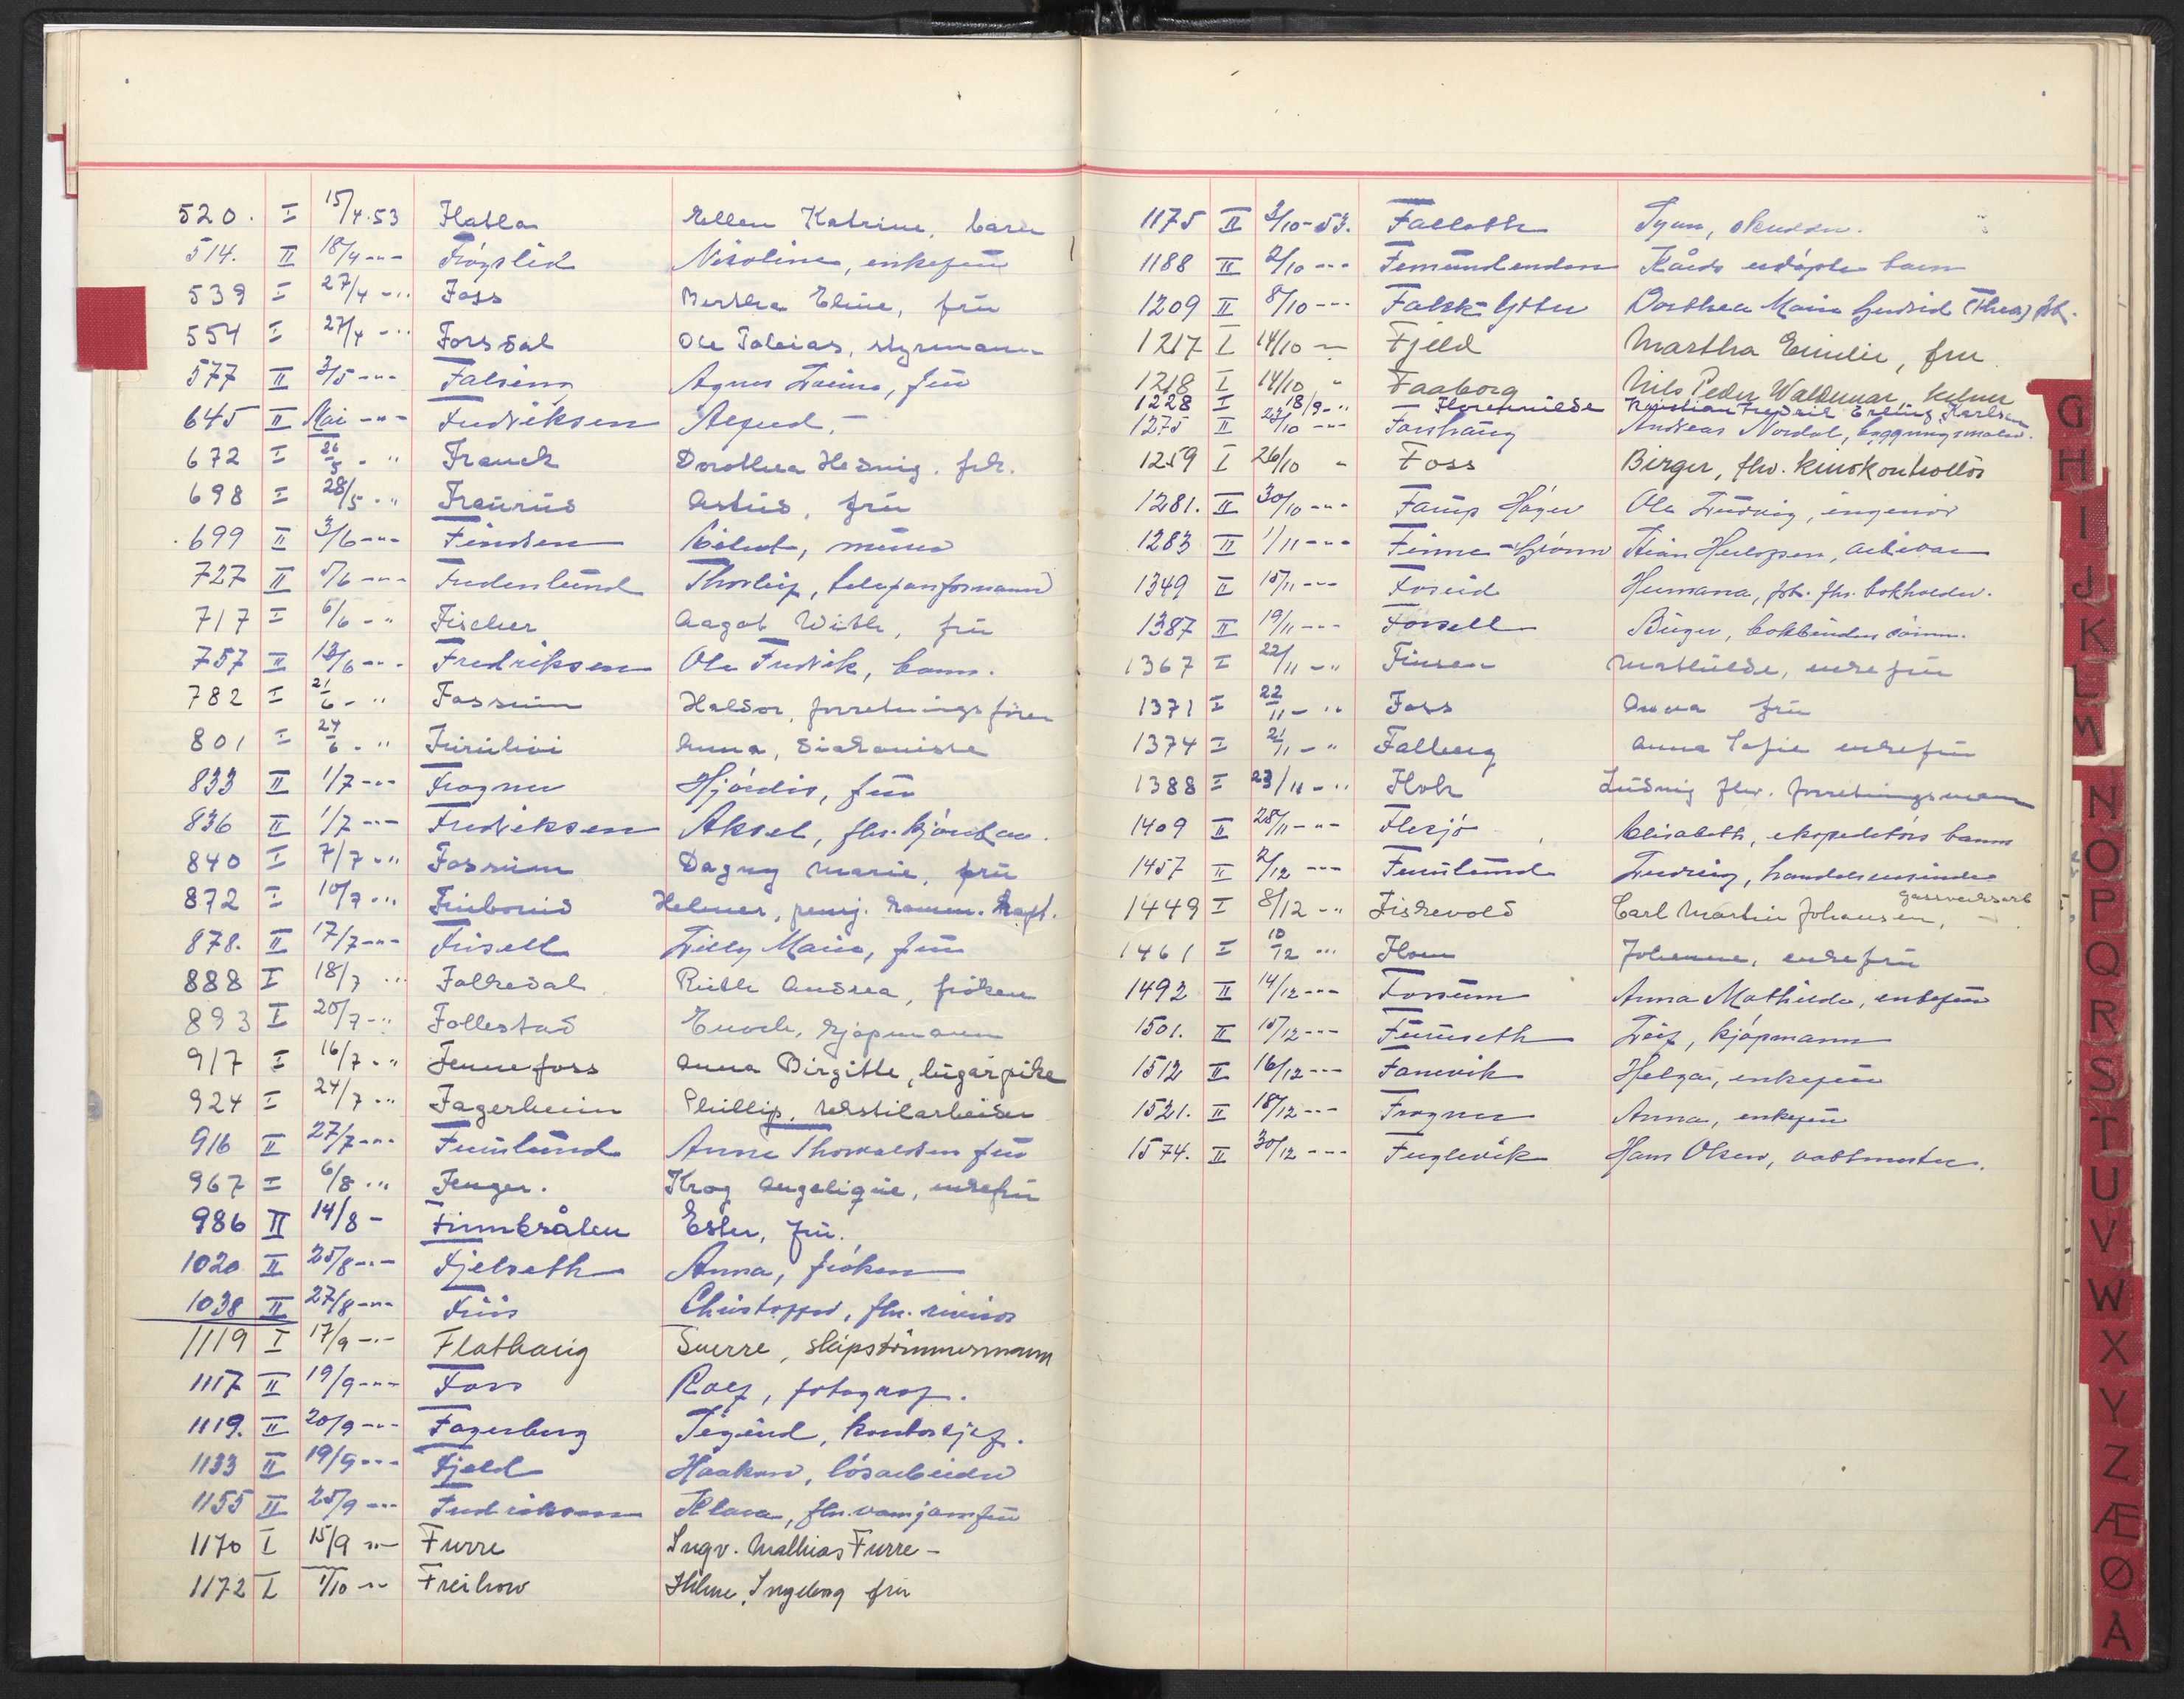 520. I 15/4.53 Flatla Ellen Katrine, barn
514. II 18/4 -"- Frøyslid Nikoline, enkefru
539 I 27/4 -"- Foss Bertha Eline, fru
554 I 27/4 -"- Forsdal Ole Tobias, styrmann
577 II 3/5 -"- Falsing Agnes, fru
645 II Mai -"- Fredriksen
672 I 26/5 - " Franck Dorothea Hedvig, frk.
698 I 28/5 - " fru
699 II 3/6 -"- Findsen murer
727 II 5/6 -"- Fredenlund Thorleif, telefonformann
717 I 6/6 - " Fischer Aagot With, fru
757 II 13/6 -"- Fredriksen Ole Fredrik, barn.
782 I 21/6 - " Fossum Haldor, forretningsfører
801 I 24/6 - " Anna, diakonisse
833 II 1/7 -"- Frogner Hjørdis, fru
836 II 1/7 -"- Fredriksen Aksel, fhv. kjørekar.
840 I 7/7 - " Fossum Dagny Marie, fru
872 I 10/7 - " Helmer, pensj. kapt.
878. II 17/7 -"- Frisell Lilly Marie, fru
888 I 18/7 " Folkedal Ruth Andrea, frøken
893 I 20/7 - " Follestad Enoch, kjøpmann
917 I 16/7 - " Fennefoss Anna Birgitte, lugarpike
924 I 24/7 - " Fagerheim Phillip, tekstilarbeider
916 II 27/7 -"- Furulund Anna Thorvaldsen fru
967 I 6/8 - " Fenger. Krog Angelique, enkefru
986 II 14/8 - Finnbråten Ester, fru.
1020 II 25/8 -"- Fjelseth Anna, frøken
1038 II 27/8 -"- Friis Christopher, fhv. revisor
1119 I 17/9 -"- Flathaug Sverre, skipstømmermann
1117 II 19/9 -"- Foss Rolf, fotograf.
1119. II 20/9 -"- Fagerberg Sigurd, kontorsjef.
1133 II 19/9 -"- Fjeld Haakon, løsarbeider
1155 II 25/9 -"- Fredriksen Klara, fhv. vaskekone
1170 I 15/9 "- Furre Ingv. Mathias Furre -
1172 I 1/10 -"- Freihow Hilme, Ingeborg fru
1175 II 3/10-53. Falleth student.
1188 II 2/10 -"- Femundenden Kåres udøpte barn
1209 II 8/10 -"- Falck-Ytter Dorthea Marie Gudrid (Thea) frk.
1217 I 14/10 - Fjeld Martha Emilie, fru
1218 I 14/10 " Faaborg Nils Peder Waldemar, kelner
1228 I 18/9 - " Florenvilde Kristian Fredrik Erling Karlsen
1275 II 29/10 -"- Forshaug Andreas Nordal, byggningsmaler.
1259 I 26/10 " Foss Birger, fhv. kinokontrollør
1281. II 30/10 -"- Famp Høyer Ole Ludvig, ingeniør
1283 II 1/11 -"- Finne-Grønn Stian Herlofsen, arkivar
1349 II 15/11 -"- Foseid Hermana, frk. fhv. bokholder.
1387 II 19/11 -"- Forsell Birger, bokbinder
1367 I 22/11 - " Finsen Mathilde, enkefru
1371 I 22/11 - " Foss Anna fru
1374 I 21/11 - " Falberg Anna Sofie enkefru
1388 I 23/11 - " Flor Ludvig fhv. forretningsmann
1409 II 28/11 -"- Flesjø Elisabeth, ekspeditørs barn
1457 II 2/12 -"- Furulund Ludvig, handelsreisende
1449 I 8/12 - " Fiskevold Carl Martin Johansen, gassverksarb
1461 I 10/12 - " Flom Johanne, enkefru
1492 II 14/12 -"- Fossum Anna Mathilde, enkefru
1501. II 15/12 -"- Furuseth Leif, kjøpmann
1512 II 16/12 -"- Fanevik Helga, enkefru
1521. II 18/12 -"- Frogner Anna, enkefru
1574. II 30/12 -"- Fuglevik Hans Olsen, vaktmester.
G
H
I
J
K
L
M
N
O
P
Q
R
S
T
U
V
W
X
Y
Z
Æ
Ø
Å